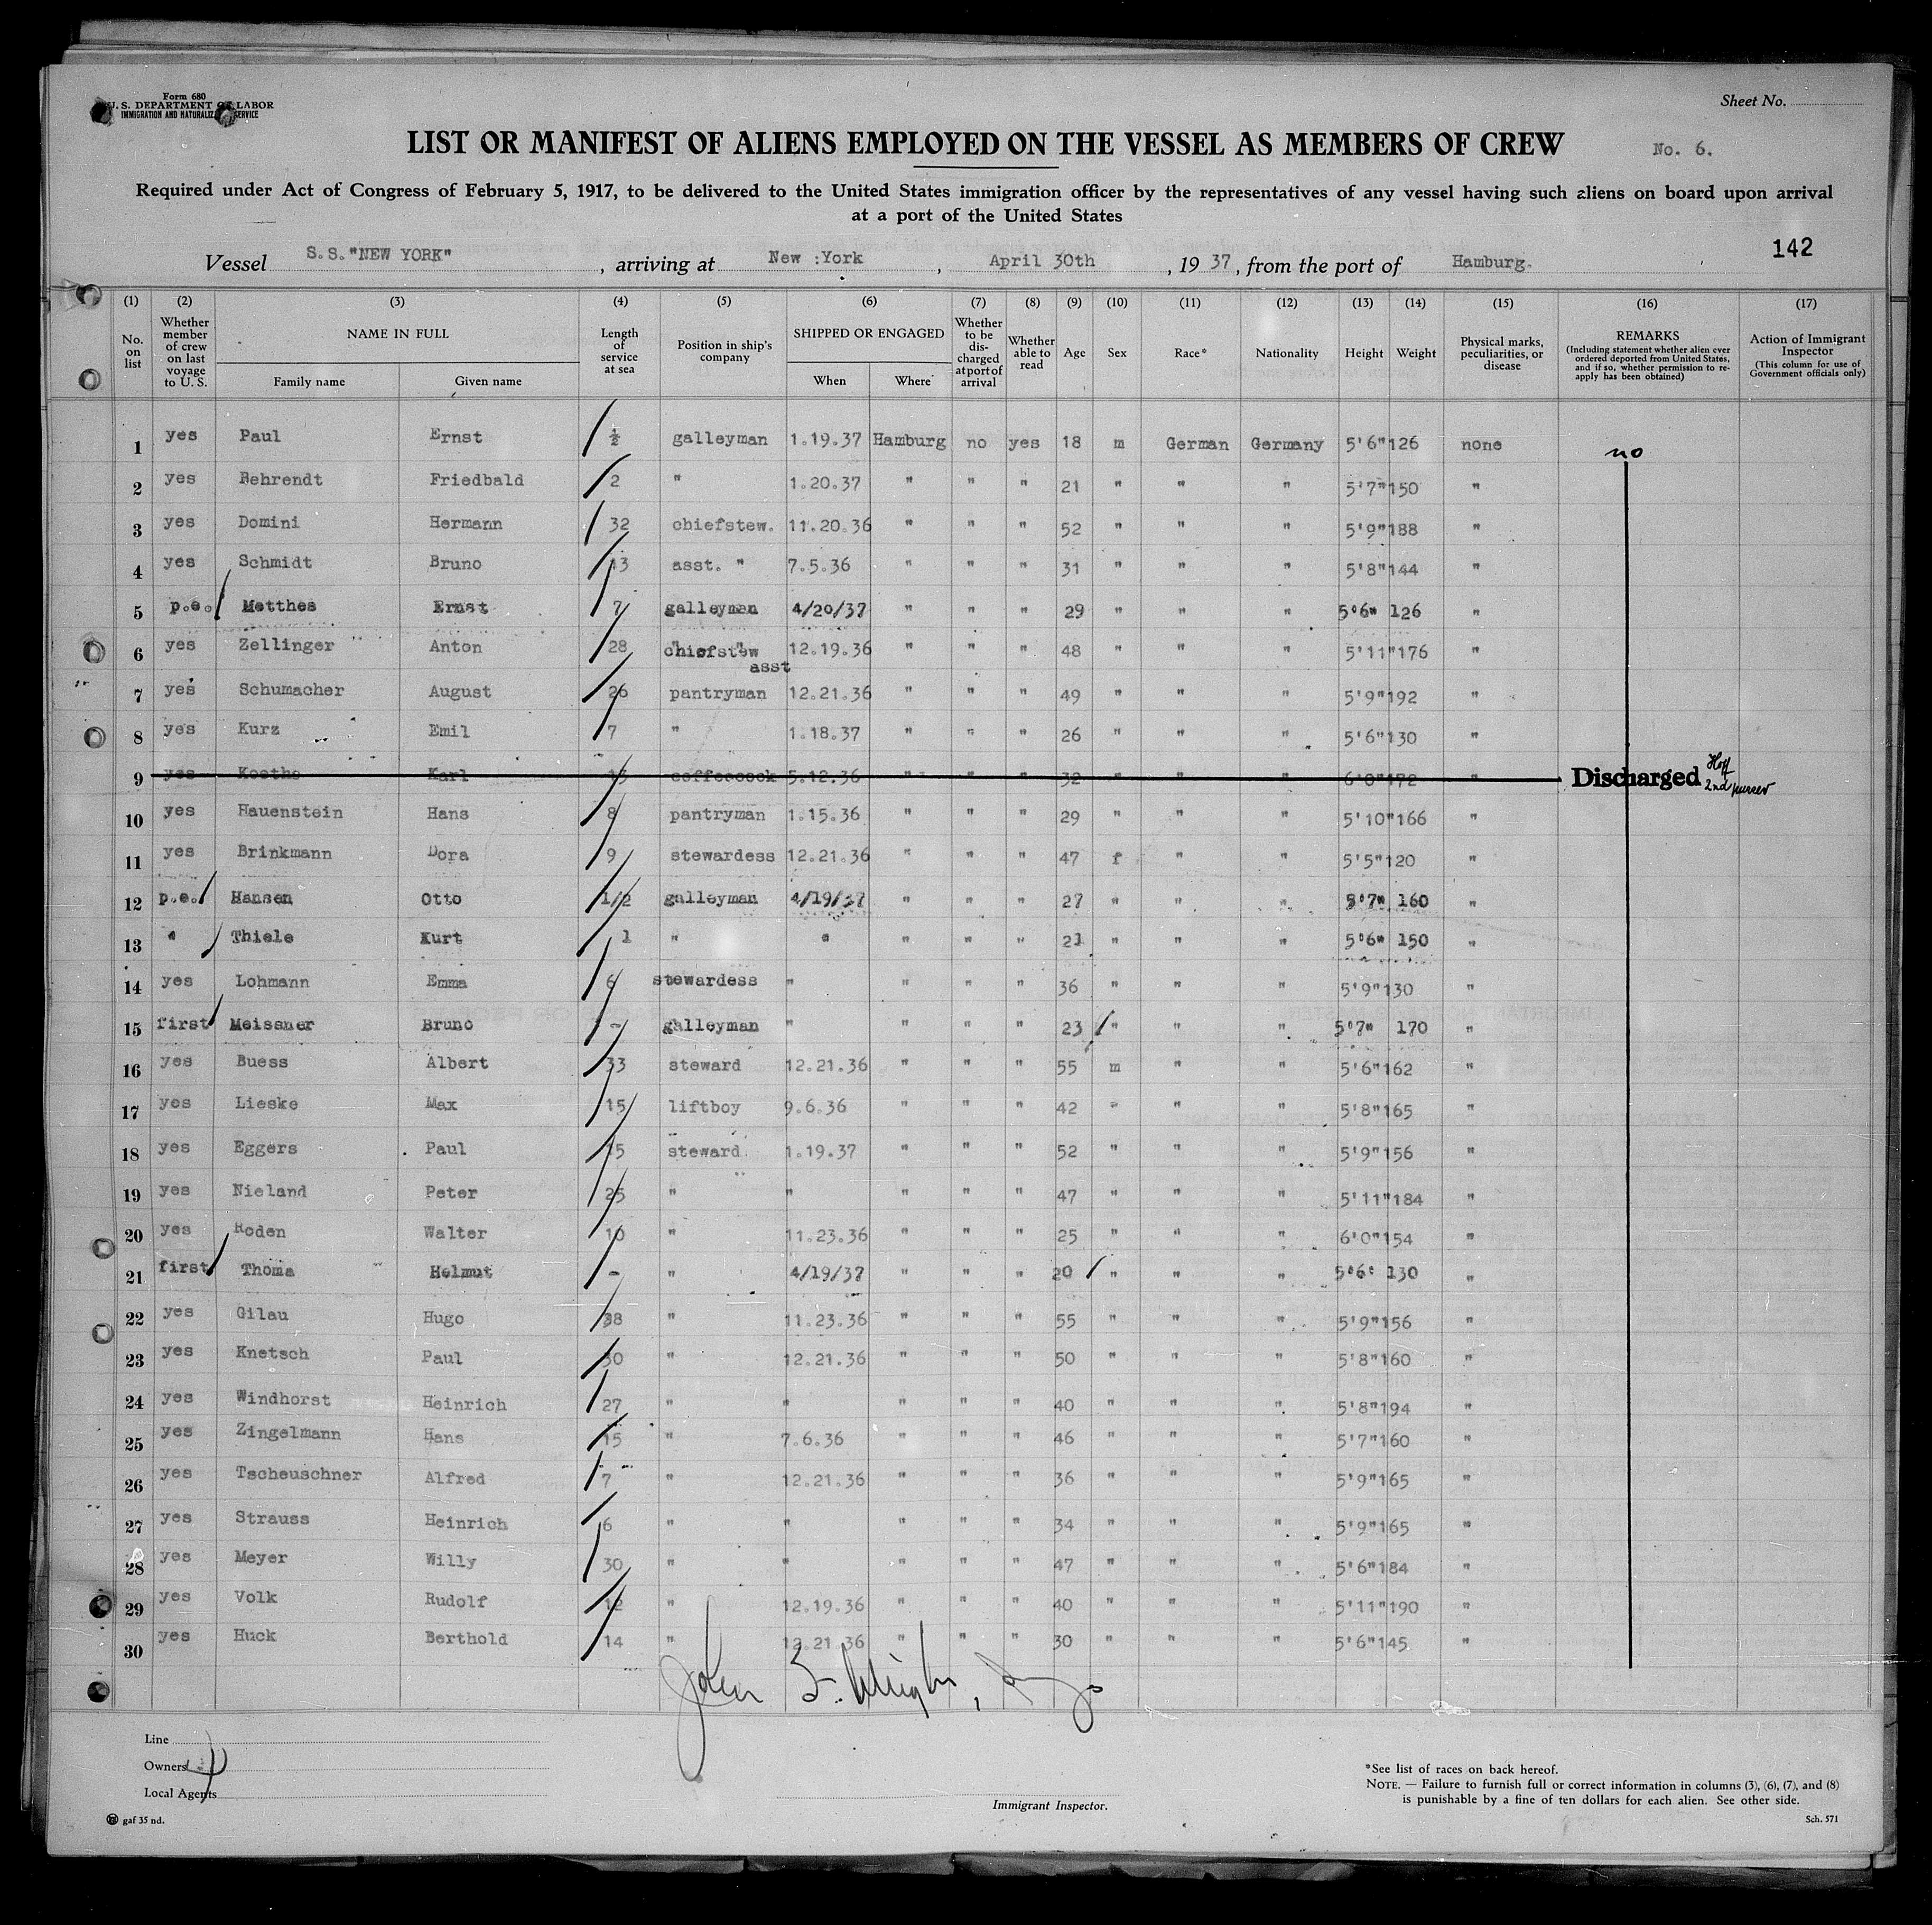 Form 680
U. S. DEPARTMENT OF LABOR
IMMIGRATION AND NATURALIZ SERVICE
Sheet No.
LIST OR MANIFEST OF ALIENS EMPLOYED ON THE VESSEL AS MEMBERS OF CREW
No. 6.
Required under Act of Congress of February 5, 1917, to be delivered to the United States immigration officer by the representatives of any vessel having such aliens on board upon arrival
at a port of the United States
142
Vessel S.S."NEW YORK" , arriving at New :York , April 30th , 19 37 , from the port of Hamburg.
(1) (2) (3) (4) (5) (6) (7) (8) (9) (10) (11) (12) (13) (14) (15) (16) (17)
No. on list
Whether member of crew on last voyage to U. S.
NAME IN FULL
Family name Given name
Length of service at sea
Position in ship's company
SHIPPED OR ENGAGED
When Where
Whether to be discharged at port of arrival
Whether able to read
Age
Sex
Race*
Nationality
Height
Weight
Physical marks, peculiarities, or disease
REMARKS
(Including statement whether alien ever ordered deported from United States, and if so, whether permission to re-apply has been obtained)
Action of Immigrant Inspector
(This column for use of Government officials only)
1 yes Paul Ernst ½ galleyman 1.19.37 Hamburg no yes 18 m German Germany 5'6" 126 none no
2 yes Behrendt Friedbald 2 " 1.20.37 " " " 21 " " " 5'7" 150 "
3 yes Domini Hermann 32 chiefstew. 11.20.36 " " " 52 " " " 5'9" 188 "
4 yes Schmidt Bruno 13 asst. " 7.5.36 " " " 31 " " " 5'8" 144 "
5 p.e. Matthes Ernst 7 galleyman 4/20/37 " " " 29 " " " 5'6" 126 "
6 yes Zellinger Anton 28 chiefstew asst 12.19.36 " " " 48 " " " 5'11" 176 "
7 yes Schumacher August 26 pantryman 12.21.36 " " " 49 " " " 5'9" 192 "
8 yes Kurz Emil 7 " 1.18.37 " " " 26 " " " 5'6" 130 "
9 yes Koethe Karl 15 coffeecock 5.12.36 " " " 32 " " " 6'0" 172 " Discharged 2nd purser
10 yes Hauenstein Hans 8 pantryman 1.15.36 " " " 29 " " " 5'10" 166 "
11 yes Brinkmann Dora 9 stewardess 12.21.36 " " " 47 f " " 5'5" 120 "
12 p.e. Hansen Otto 1/2 galleyman 4/19/37 " " " 27 " " " 5'7" 160 "
13 " Thiele Kurt 1 " " " " " 21 " " " 5'6" 150 "
14 yes Lohmann Emma 6 stewardess " " " " 36 " " " 5'9" 130 "
15 first Meissner Bruno - galleyman " " " " 23 " " " 5'7" 170 "
16 yes Buess Albert 33 steward 12.21.36 " " " 55 m " " 5'6" 162 "
17 yes Lieske Max 15 liftboy 9.6.36 " " " 42 " " " 5'8" 165 "
18 yes Eggers Paul 15 steward 1.19.37 " " " 52 " " " 5'9" 156 "
19 yes Nieland Peter 25 " " " " " 47 " " " 5'11" 184 "
20 yes Roden Walter 10 " 11.23.36 " " " 25 " " " 6'0" 154 "
21 first Thoma Helmut - " 4/19/37 " " " 20 " " " 5'6" 130 "
22 yes Gilau Hugo 38 " 11.23.36 " " " 55 " " " 5'9" 156 "
23 yes Knetsch Paul 30 " 12.21.36 " " " 50 " " " 5'8" 160 "
24 yes Windhorst Heinrich 27 " " " " " 40 " " " 5'8" 194 "
25 yes Zingelmann Hans 15 " 7.6.36 " " " 46 " " " 5'7" 160 "
26 yes Tscheuschner Alfred 7 " 12.21.36 " " " 36 " " " 5'9" 165 "
27 yes Strauss Heinrich 6 " " " " " 34 " " " 5'9" 165 "
28 yes Meyer Willy 30 " " " " " 47 " " " 5'6" 184 "
29 yes Volk Rudolf 12 " 12.19.36 " " " 40 " " " 5'11" 190 "
30 yes Huck Berthold 14 " 12.21.36 " " " 30 " " " 5'6" 145 "
John
Line
Owners
Local Agents
Immigrant Inspector.
*See list of races on back hereof.
NOTE. — Failure to furnish full or correct information in columns (3), (6), (7), and (8)
is punishable by a fine of ten dollars for each alien. See other side.
gaf 35 nd.
Sch. 571